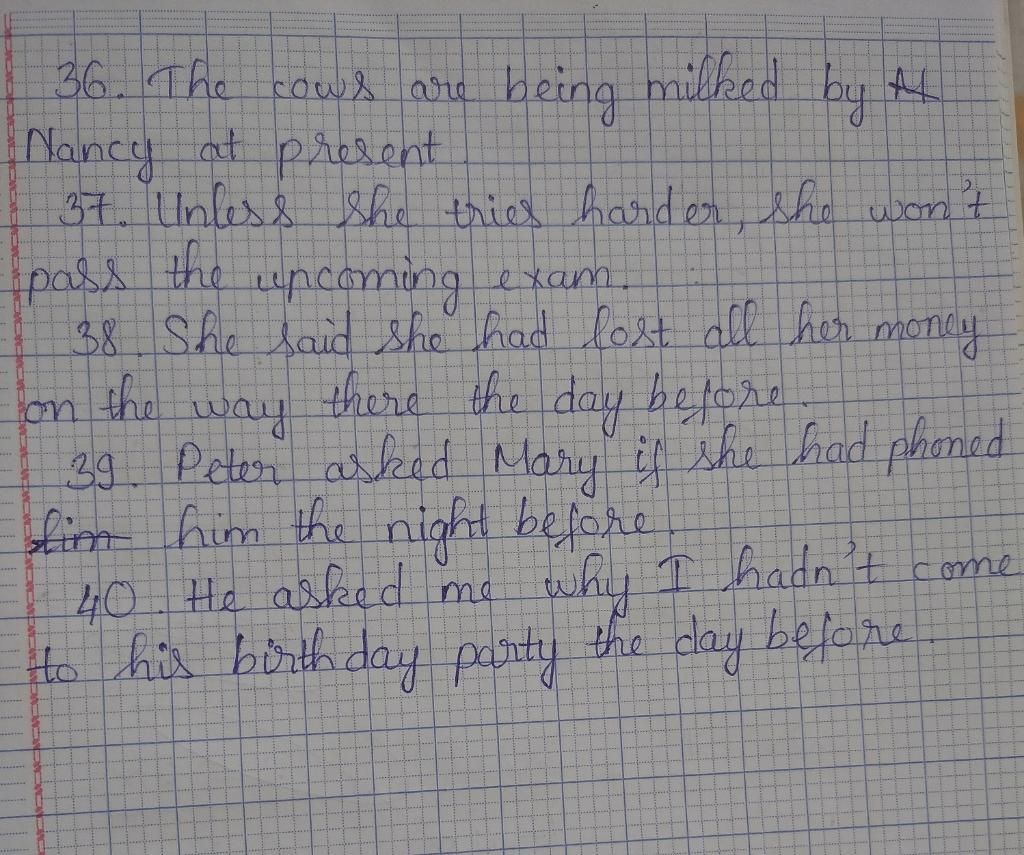 36. The cows are being milked by
Nancy at present
37. Unless she tries harder, she won't
pass the upcoming exam.
38. She said she had lost all her money
on the way there the day before.
39. Peter asked Mary if she had phoned
him him the night before.
40. He asked me why I hadn't come
to his birthday party the day before.